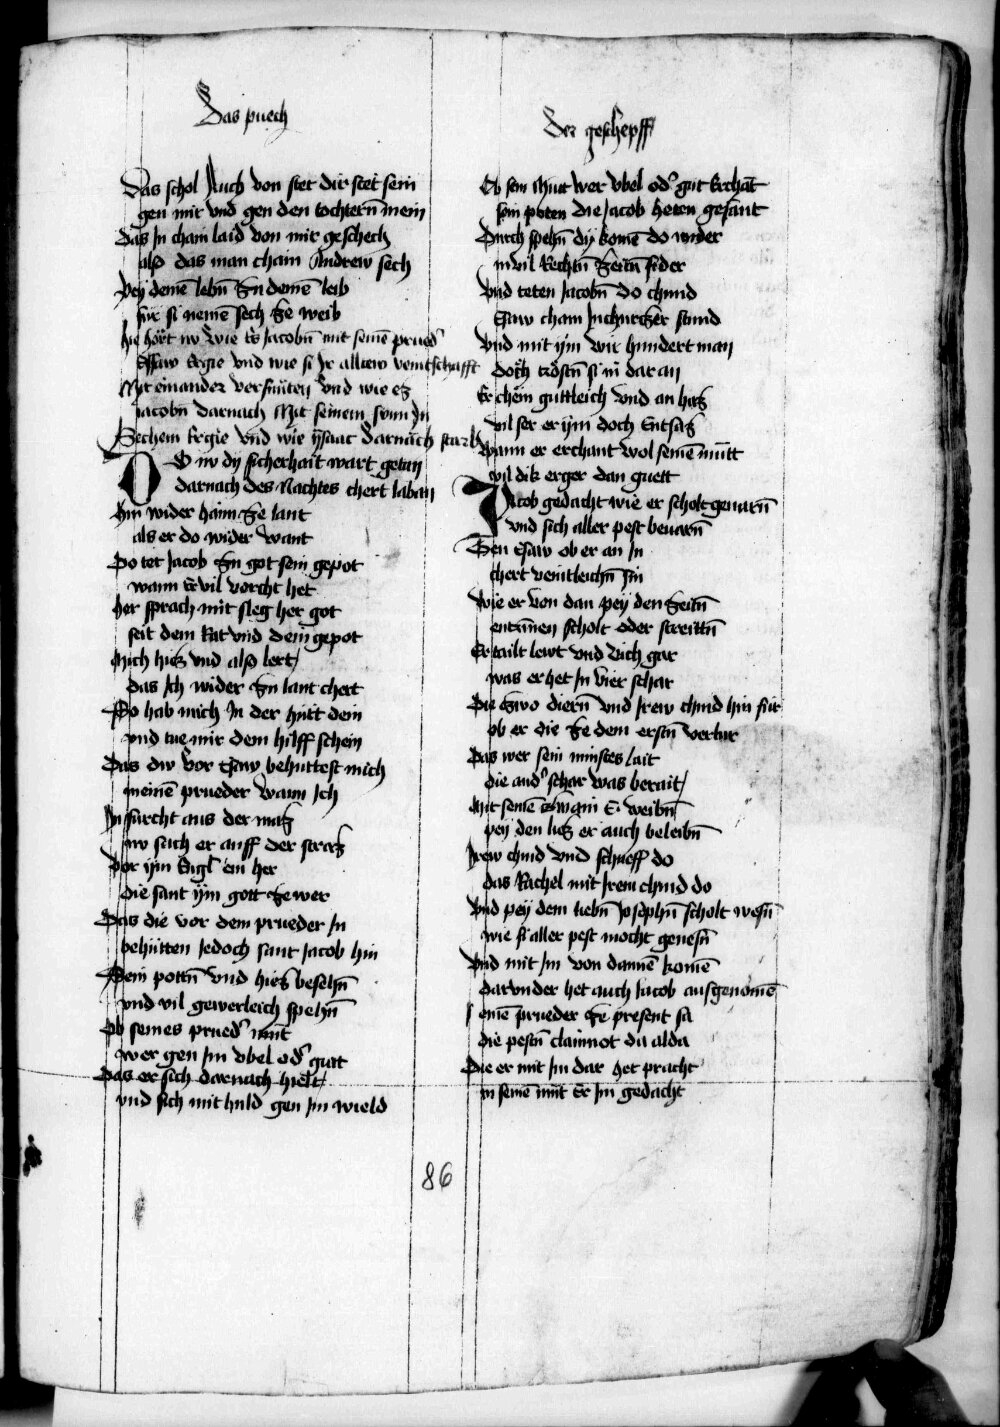 Das puech
Der geschepff
Das schol Auch von stet dir stet sein
gen mir vnd gen den tochtern mein
das In chain laid von mir geschech
also das man chain Andrew sech
bey deinē lebñ zu deinē leib
für si nemē sech ze weib
hie hört nv wie es Jacobñ mit seinē prued᷑
Esaw Ergie vnd wie si Ir alltew veintschafft
Mit einander versünten vnd wie es
Jacobñ darnach Mit seinem sunn In
Sechem Ergie vnd wie ysaac darnach starb
Do nv dy sicherhait wart getan
darnach des Nachtes chert laban
hin wider haim ze lant
als er do wider want
Do tet Jacob zu got sein gepot
wann er vil vorcht het
her sprach mit fleg her got
seit dein Rat vnd dein gepot
Mich hies vnd also lert
das Ich wider zu lant chert
So hab mich In der hütt dein
vnd tue mir dein hilff schein
Das dw vor Esaw behuttest mich
meinē prueder wann Ich
In fürcht aus der mas
nv sach er auff der strasz
Vor ym Engl ein her
die sant ym gott ze wer
Das die vor dem prueder In
behütten Jedoch sant Jacob hin
Sein pottñ vnd hies besehñ
vnd vil gewerleich spehñ
Ob seines prued᷑ müt
wer gen Im vbel od᷑ gut
Das er sich darnach hielt
vnd sich mit huld gen Im wield
Ob sein Mut wer vbel od᷑ gut Erchāt
sein poten die Jacob heten gesant
Durch spehñ dy komē do wider
in vil Rechtñ zeitñ sider
Vnd teten Jacobñ do chund
Esaw cham In churtzer stund
Vnd mit ym vir hundert man
doch trostñ si in dar an
Er chem guttleich vnd an has
vil ser er ym doch Entsas
wann er erchant wol seinē mūtt
vil dik erger dan guett
Jacob gedacht wie er scholt genarñ
vnd sich aller pest bewarñ
Den Esaw ob er an In
chert veintleichñ sin
Wie er von dan pey den zeitñ
entrinnen scholt oder streittñ
Er tailt lewt vnd vich gar
was er het In vier schar
Die zwo diernñ vnd Irew chind hin für
ob er die ze dem erstñ verlur
Das wer sein minstes lait
die and᷑ schar was berait
Mit seinē zwain E weibñ
pey den lies er auch beleibñ
Irew chind vnd schueff do
das Rachel mit Irem chind do
Vnd pey dem liebñ Josephñ scholt wesñ
wie si aller pest mocht genesñ
Vnd mit Im von dannē komē
darunder het auch Jacob ausgenomē
seinē prueder ze present sa
die pestñ clainot da alda
Die er mit Im dar het pracht
in seinē mūt Er Im gedacht
86